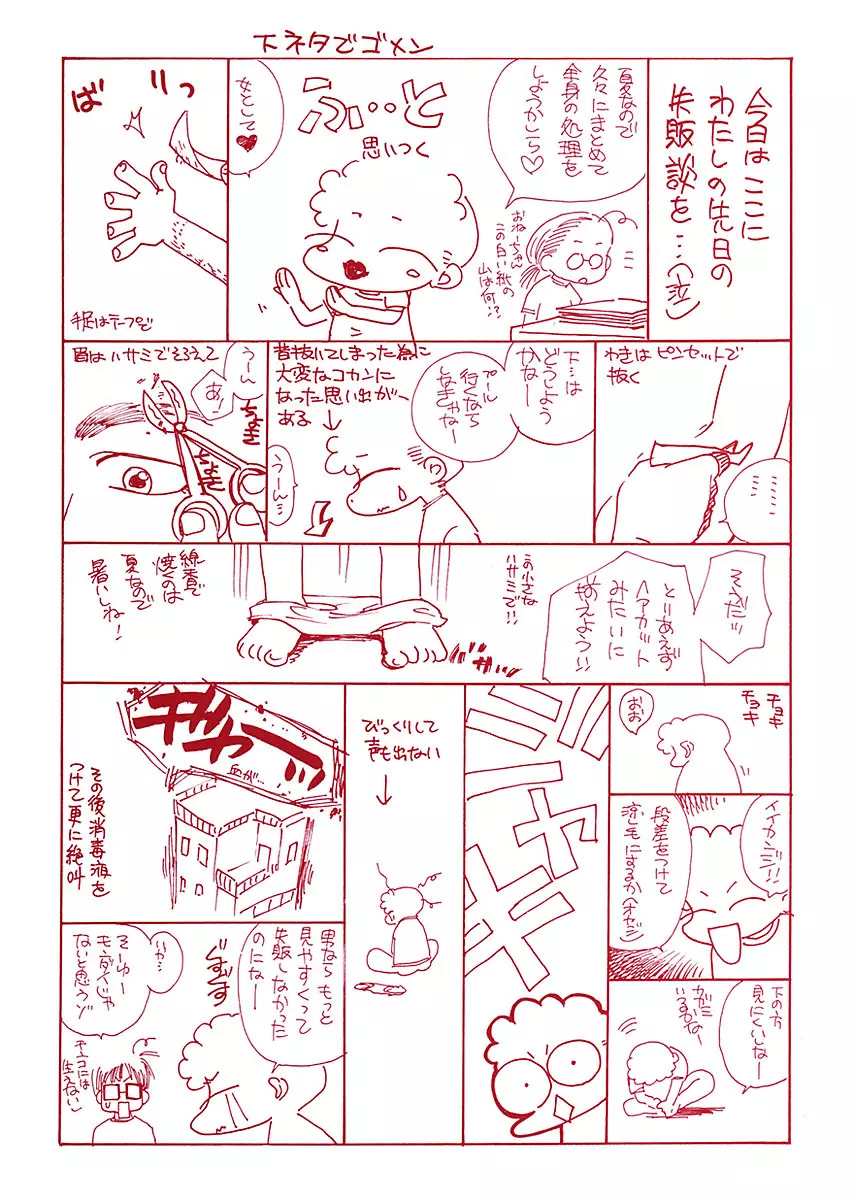 下ネタでゴメン
今日はここに
わたしの先日の
失敗談を…(泣)
夏なので
久々にまとめて
全身の処理を
しようかしら♡
おねーちゃん
この白い紙の
山は何!?
ふ・・と
思いつく
女として♥
ば
りっ
手足はテープで
わきはピンセットで
抜く
………
下…は
どうしよう
かなー
プール
行くなら
しなきゃなー
昔抜いてしまった為に
大変なコカンに
なった思い出がー
ある
↓
うーん…
眉はハサミでそろえて
うーん
あ!
ちょき
ちょき
そうだッ
とりあえず
ヘアカット
みたいに
揃えよう!!
この小さな
ハサミで!!
線香で
焼くのは
夏なので
暑いしね!
チョキ
チョキ
おお
イイカンジ!!
段差をつけて
涼しモにするか(オヤジ)
下の方
見にくいしなー
カガミ
いるかなー
ジャキ
びっくりして
声も出ない
↓
ギャー
血が…
その後消毒液を
つけて更に絶叫
男ならもっと
見やすくって
失敗しなかった
のになー
ぐすぐす
いや…
そーゆー
モンダイじゃ
ないと思うゾ